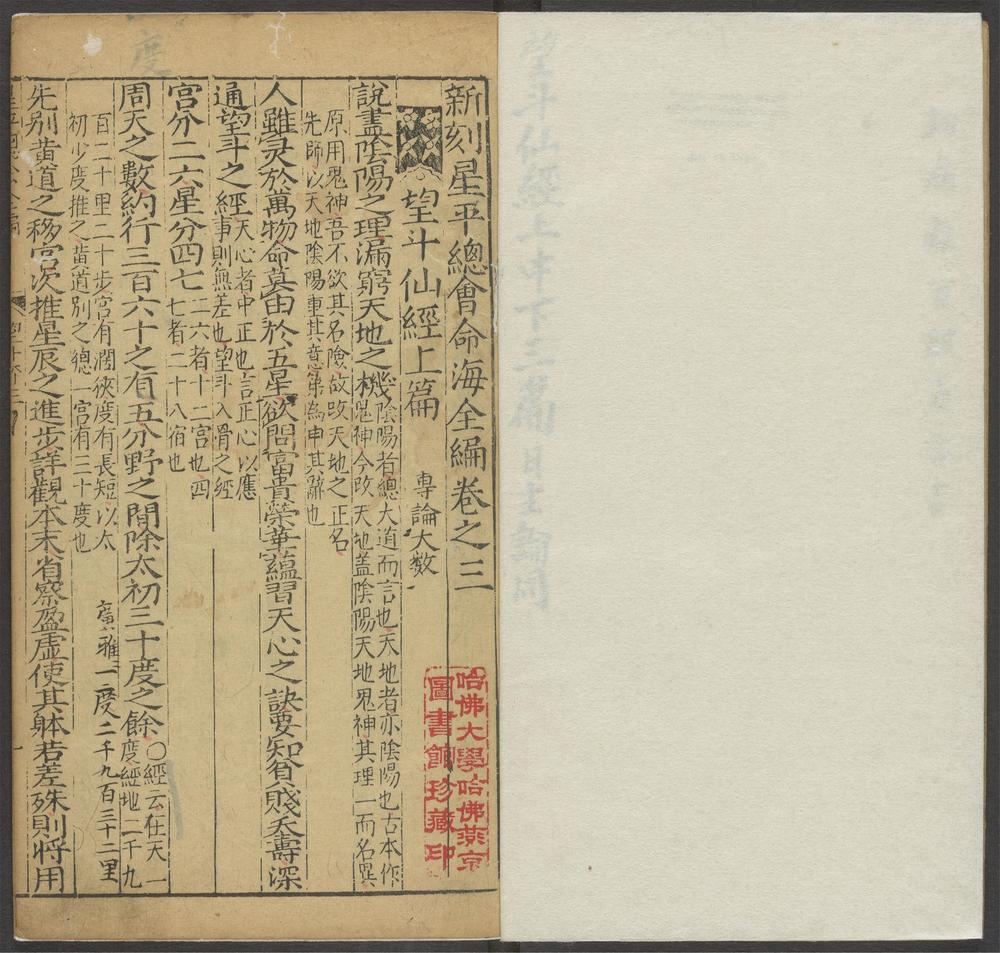 新刻星平總會命海全編卷之三
望斗仙經上篇 專論大數
說盡陰陽之理漏窮天地之機陰陽者總大道而言也天地者亦陰陽也古本作
鬼神今改天地蓋陰陽天地鬼神其理一而名異
原用鬼神吾不欲其名險故改天地之正名
先師以天地陰陽重其意第為申其辭也
人雖灵於萬物命莫由於五星欲問富貴榮華蘊習天心之訣要知貧賤夭壽深
通望斗之經天心者中正也言正心以應
事則無差也望斗入骨之經
宮分二六星分四七二六者十二宮也四
七者二十八宿也
周天之數約行三百六十之有五分野之間除太初三十度之餘〇經云在天一
度經地二千九
百二十里二十步宮有濶狹度有長短以太
初少度推之黃道別之總一宮有三十度也
廣雅一度二千九百三十二里
先別黃道之移宮次推星辰之進步詳觀本末省察盈虛使其躰若差殊則將用
哈佛大學哈佛燕京
圖書館珍藏印
度
望斗仙經上中下三篇